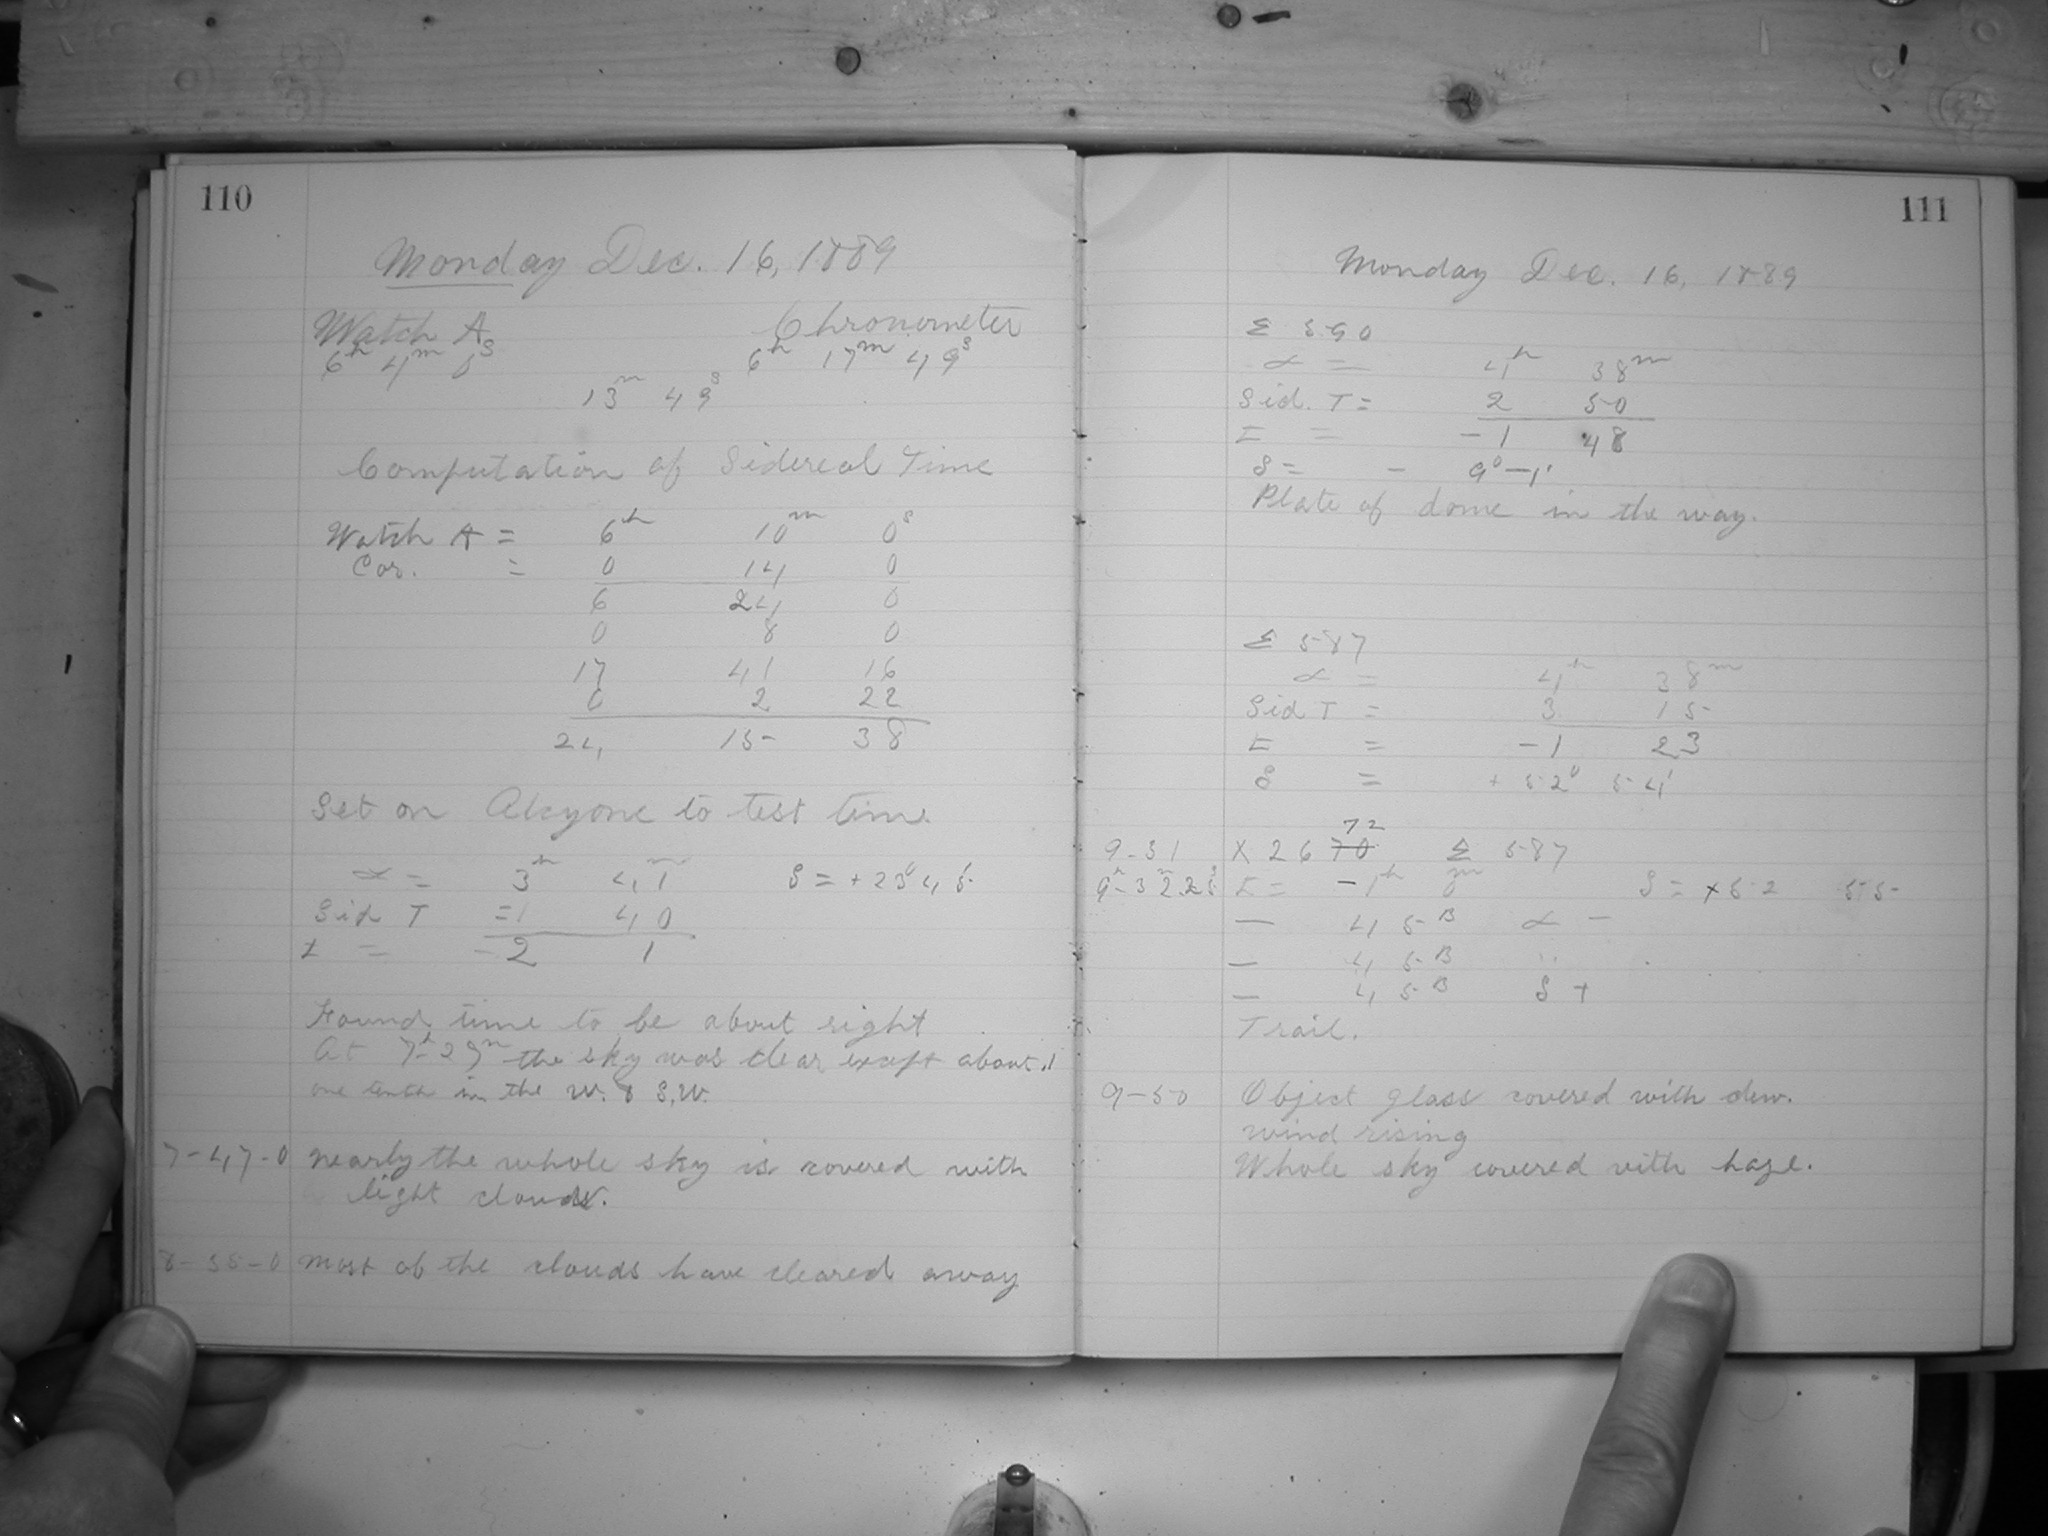 110
Monday Dec. 16, 1889
Watch A Chronometer
6h 4m 0s 6h 17m 49s
13m 49s
Computation of Sidereal Time
Watch A = 6h 10m 0s
Cor. = 0 14 0
6 24 0
0 8 0
17 41 16
0 2 22
24 15 38
Set on Alcyone to test time
α = 3h 41m δ = +23° 45
Sid T = 1 40
t = -2 1
Found time to be about right
At 7h-29m the sky was clear except about .1
one tenth in the W. & S.W.
7-47-0 nearly the whole sky is covered with
light clouds.
8-35-0 most of the clouds have cleared away
111
Monday Dec. 16, 1889
Σ 590
α = 4h 38m
Sid. T = 2 50
t = -1 48
δ = - 9°-1'
Plate of dome in the way.
Σ 587
α = 4h 38m
Sid T = 3 15
t = -1 23
δ = + 52° 54'
72
9-31 X 2670 Σ 587
9h-32m 25s t = -1h m δ = +52 55
— 45 B α —
— 45 B "
— 45 B δ +
Trail.
9-50 Object glass covered with dew.
wind rising
Whole sky covered with haze.